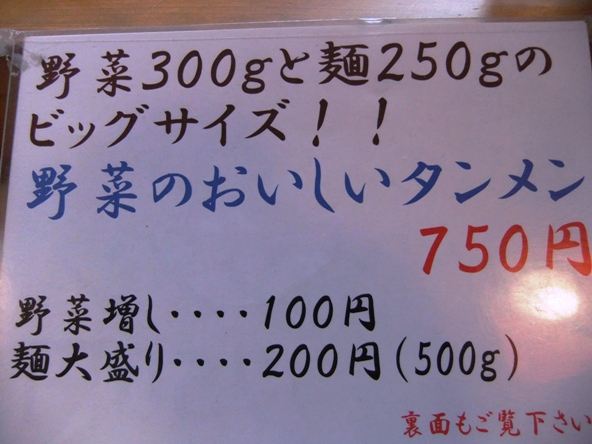 野菜300gと麺250gの
ビッグサイズ！！
野菜のおいしいタンメン
750円
野菜増し････100円
麺大盛り････200円(500g)
裏面もご覧下さい